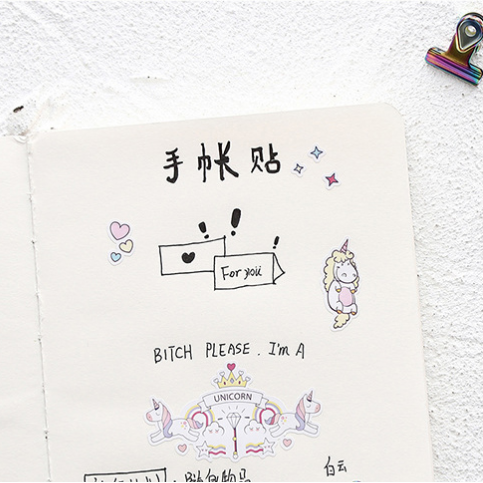 手帐贴
For you
BITCH PLEASE. I'm A
UNICORN
白云